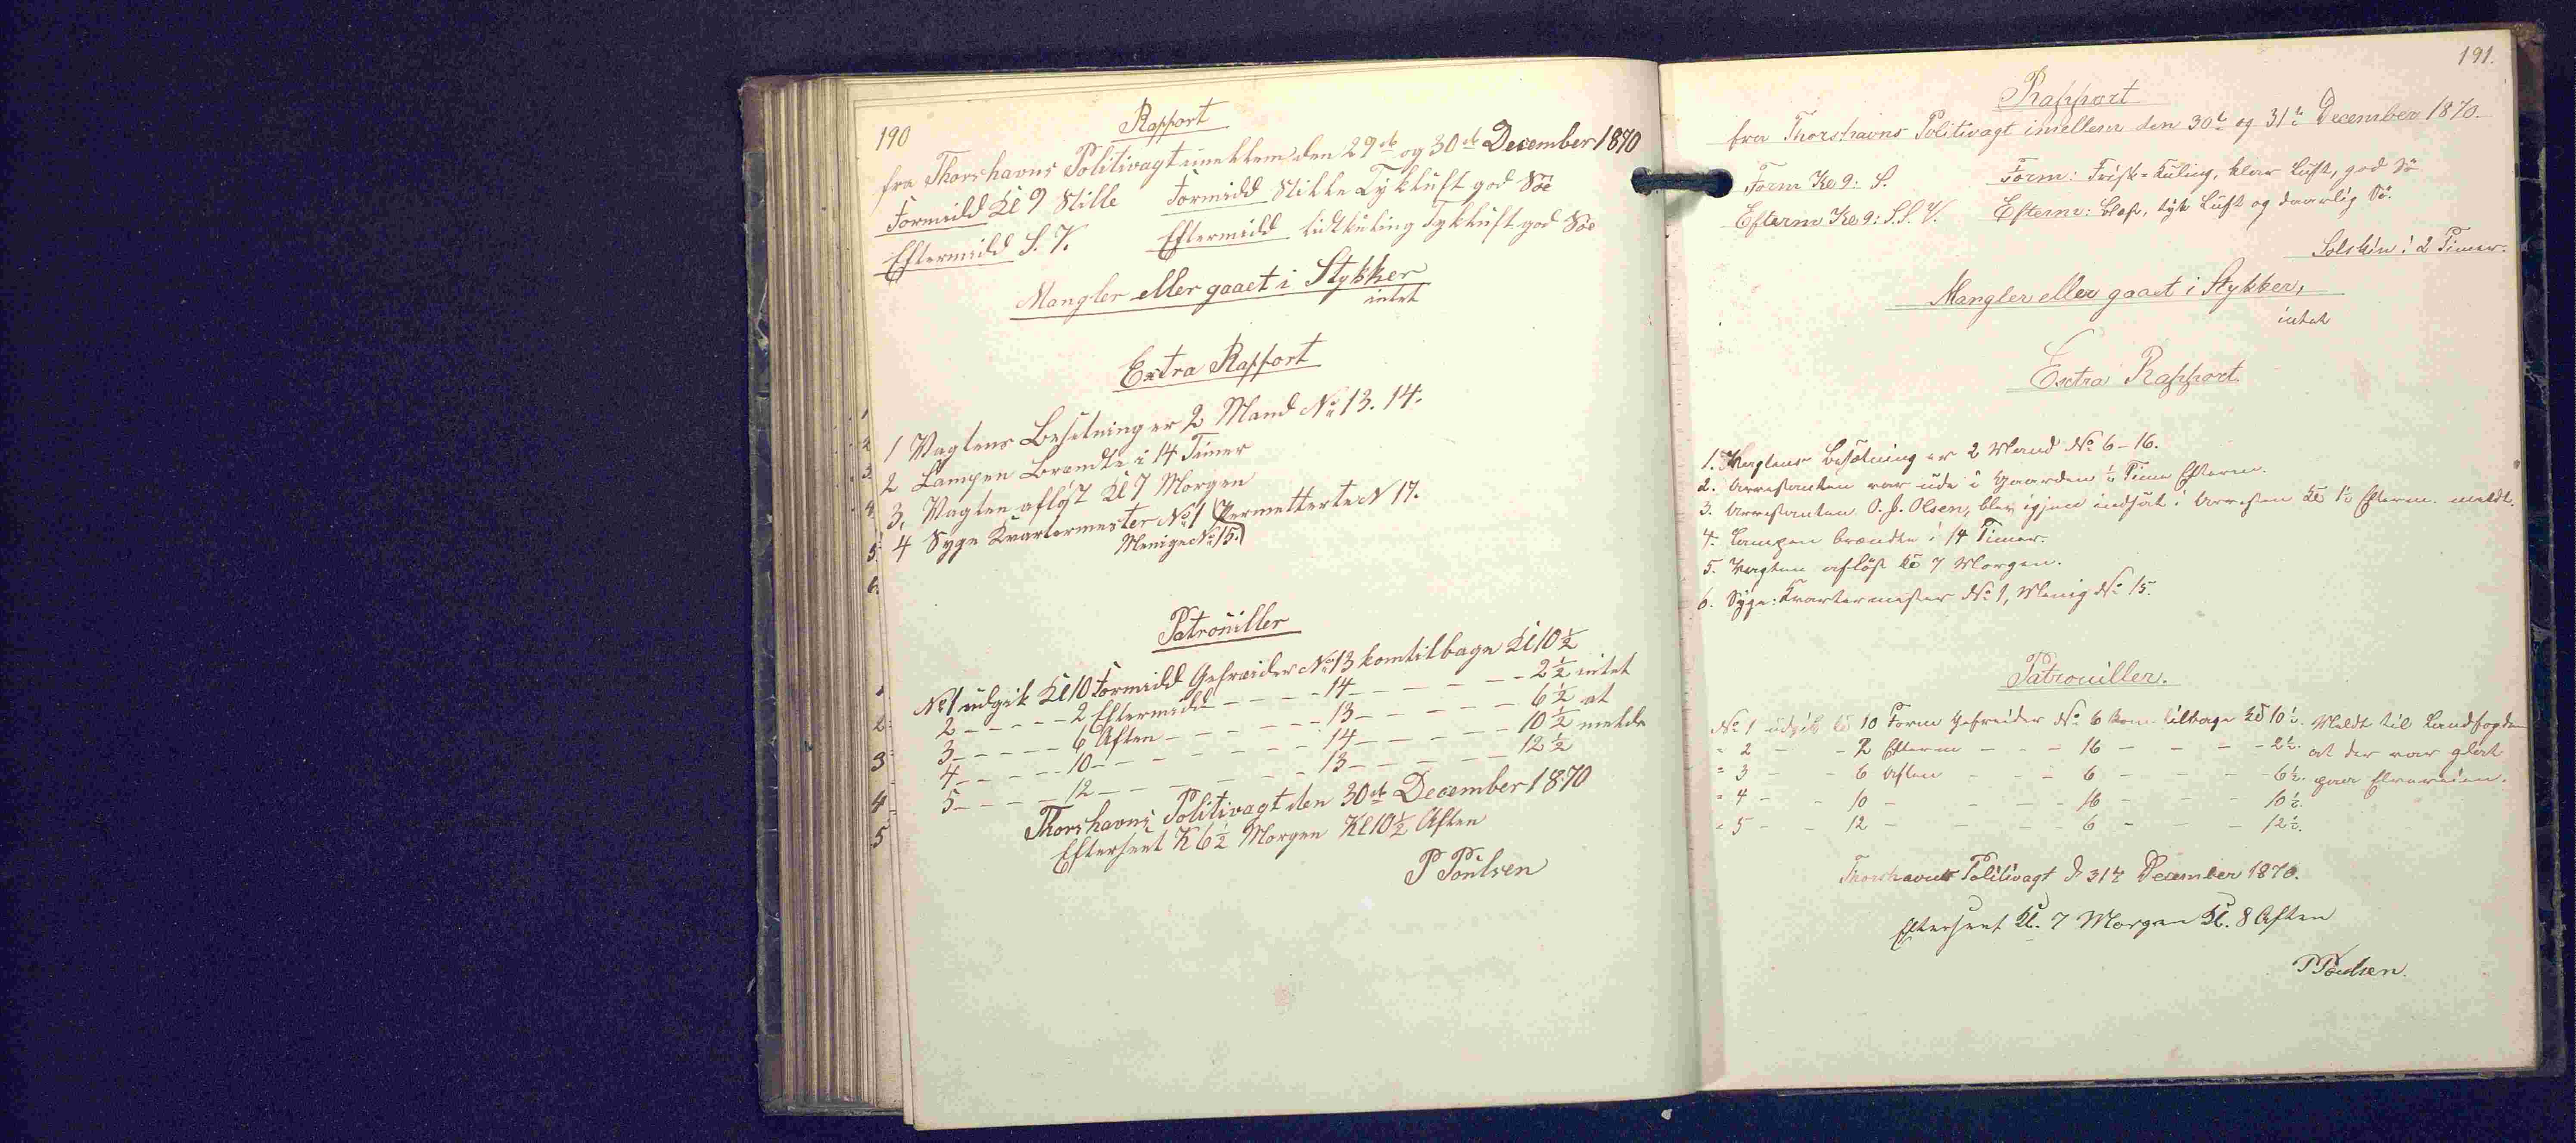 190
Rapport
fra Thorshavns Politivagt imellem den 29de og 30de December 1870
Formidd Kl 9 Stille Formidd Stille Tykluft god Söe
Eftermidd S. V. Eftermidd lidtkuling Tykluft god Söe
Mangler eller gaaet i Stykker
intet
Extra Rapport
1 Vagtens Besetning er 2 Mand No 13. 14.
2 Lampen brændte i 14 Timer
3, Vagten aflöst Kl 7 Morgen
4 Syge Kvartermester No 1 Permetterte N 17.
Menige No 15.
Patrouiller
No 1 udgik Kl 10 Formidd Gefreider No 13 kom tilbage Kl 10½
2 - - - - 2 Eftermidd - - - - 14 - - - - - 2½ intet
3 - - - - 6 Aften - - - - 13 - - - - - 6½ at
4 - - - - 10 - - - - - 14 - - - - - 10½ melde
5 - - - - 12 - - - - - 13 - - - - - 12½
Thorshavns Politivagt den 30de December 1870
Efterseet K 6½ Morgen Kl 10½ Aften
P Poulsen
191.
Rapport
fra Thorshavns Politivagt imellem den 30te og 31te December 1870.
Form Kl 9: S. Form: Frisk-Kuling, klar Luft, god Sö
Efterm Kl 9: S.S.V. Efterm: Blæst, tyk Luft og daarlig Sö.
Solskin i 2 Timer.
Mangler eller gaaet i Stykker,
intet
Esctra Rapport.
1. Vagtens Besætning er 2 Mand No 6-16.
2. Arrestanten var ude i Gaarden ½ Time Efterm.
3. Arrestanten O. J. Olsen, blev igjen indsat i Arresten Kl 1½ Efterm. meldt.
4. Lampen brændte i 14 Timer.
5. Vagten aflöst Kl 7 Morgen.
6. Syge: Kvartermester No 1, Menig No 15.
Patrouiller.
No 1 udgik Kl 10 Form Gefreider No 6 kom tilbage Kl 10½. Meldt til Landfogden
" 2 - - 2 Efterm - - - 16 - - - - 2½. at der var glat
" 3 - - 6 Aften - - - 6 - - - - 6½. paa
" 4 - - 10 - - - - 16 - - - 10½.
" 5 - - 12 - - - - 6 - - - 12½.
Thorshavns Politivagt d 31te December 1870.
Efterseet Kl. 7 Morgen Kl. 8 Aften
P Poulsen.